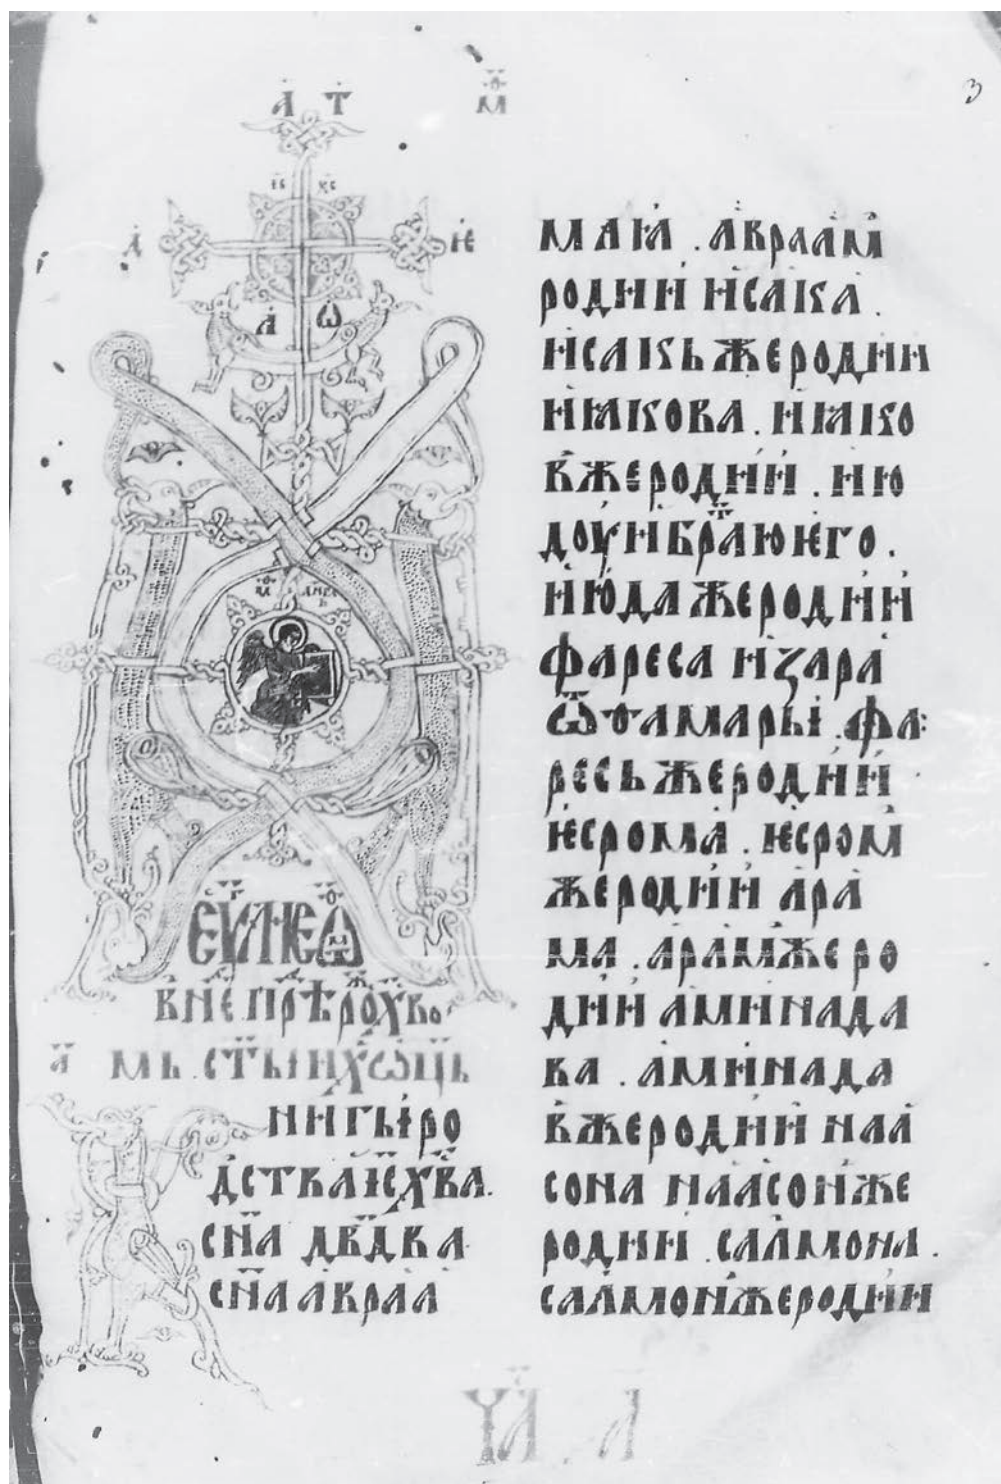 А Т
М
3
ІС ХС
Д ІЄ
А Ѡ
ЄУАНЄ Ѿ
В НЄ ПРѢ РОХВО
А МЬ СТЫИХ ОЦЬ
НИГЫ РО
ДСТВА ІС ХВА.
СНА ДВДВА
СНА АВРАА
МАꙖ . АВРААМ
РОДИИ ИСАКА .
ИСАКЬ ЖЕ РОДИИ
ИꙖКОВА . ИꙖКО
В ЖЕ РОДИИ . ИЮ
ДОУ И БРАЮ ѤГО .
ИЮДА ЖЕ РОДИИ
ФАРЕСА И ЗАРА
Ѿ ѲАМАРЫ . ФА:
РЕСЬ ЖЕ РОДИИ
ѤСРОМА . ѤСРОМ
ЖЕ РОДИИ АРА
МА . АРАМ ЖЕ РО
ДИИ АМИНАДА
ВА . АМИНАДА
В ЖЕ РОДИИ НАА
СОНА НААСОН ЖЕ
РОДИИ . САЛМОНА .
САЛМОН ЖЕ РОДИИ